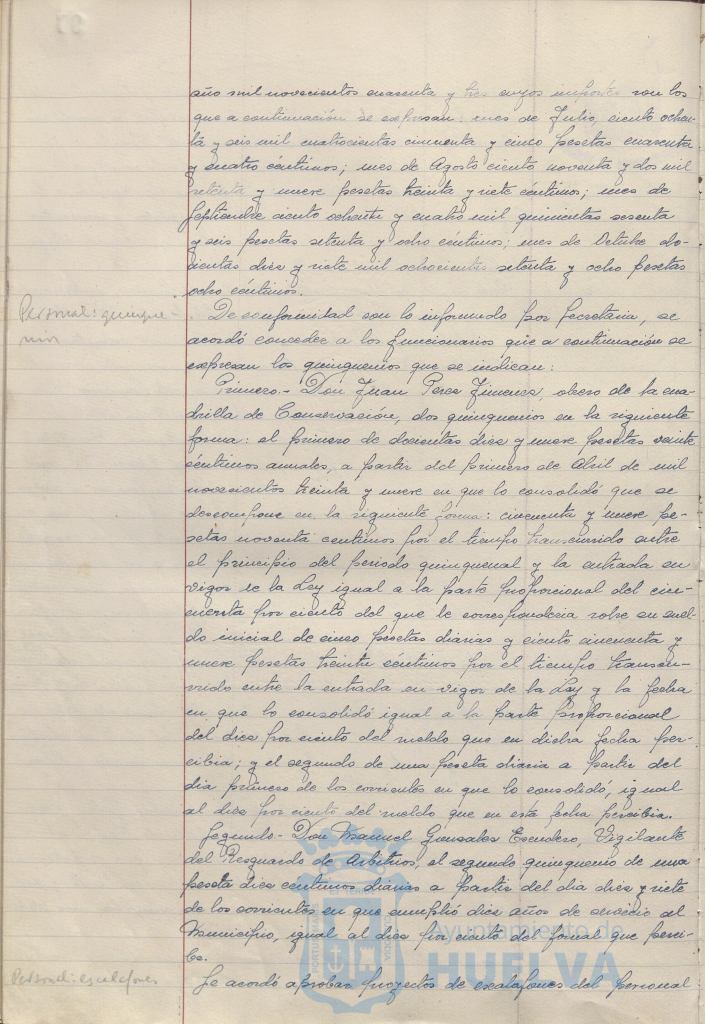 año mil novecientos cuarenta y tres cuyos importes son los
que a continuación se expresan: mes de Julio, ciento ochen-
ta y seis mil cuatrocientas cincuenta y cinco pesetas cuarenta
y cuatro céntimos; mes de Agosto ciento noventa y dos mil
setenta y nueve pesetas treinta y siete céntimos; mes de
Septiembre ciento ochenta y cuatro mil quinientas sesenta
y seis pesetas setenta y ocho céntimos; mes de Octubre do-
cientas diez y siete mil ochocientas setenta y ocho pesetas
ocho céntimos.
Personal: quinque-
nios
De conformidad con lo informado por Secretaria, se
acordó conceder a los funcionarios que a continuación se
expresan los quinquenios que se indican:
Primero.- Don Juan Perez Jimenez, obrero de la cua-
drilla de Conservación, dos quinquenios en la siguiente
forma: el primero de docientas diez y nueve pesetas veinte
céntimos anuales, a partir del primero de Abril de mil
novecientos treinta y nueve en que lo consolidó que se
descompone en la siguiente forma: cincuenta y nueve pe-
setas noventa centimos por el tiempo transcurrido entre
el principio del periodo quinquenal y la entrada en
vigor de la Ley igual a la parte proporcional del cin-
cuenta por ciento del que le correspondería sobre su suel-
do inicial de cinco pesetas diarias y ciento cincuenta y
nueve pesetas treinta céntimos por el tiempo transcu-
rrido entre la entrada en vigor de la Ley y la fecha
en que lo consolidó igual a la parte proporcional
del diez por ciento del sueldo que en dicha fecha per-
cibia; y el segundo de una peseta diaria a partir del
dia primero de los corrientes en que lo consolidó, igual
al diez por ciento del sueldo que en esta fecha percibia.
Segundo.- Don Manuel Gonzalez Escudero, Vigilante
del Resguardo de Arbitrios, el segundo quinquenio de una
peseta diez centimos diarias a partir del dia diez y siete
de los corrientes en que cumplió diez años de servicio al
Municipio, igual al diez por ciento del jornal que perci-
be.
Personal: escalafones
Se acordó aprobar proyectos de escalafones del personal
Ayuntamiento de
HUELVA